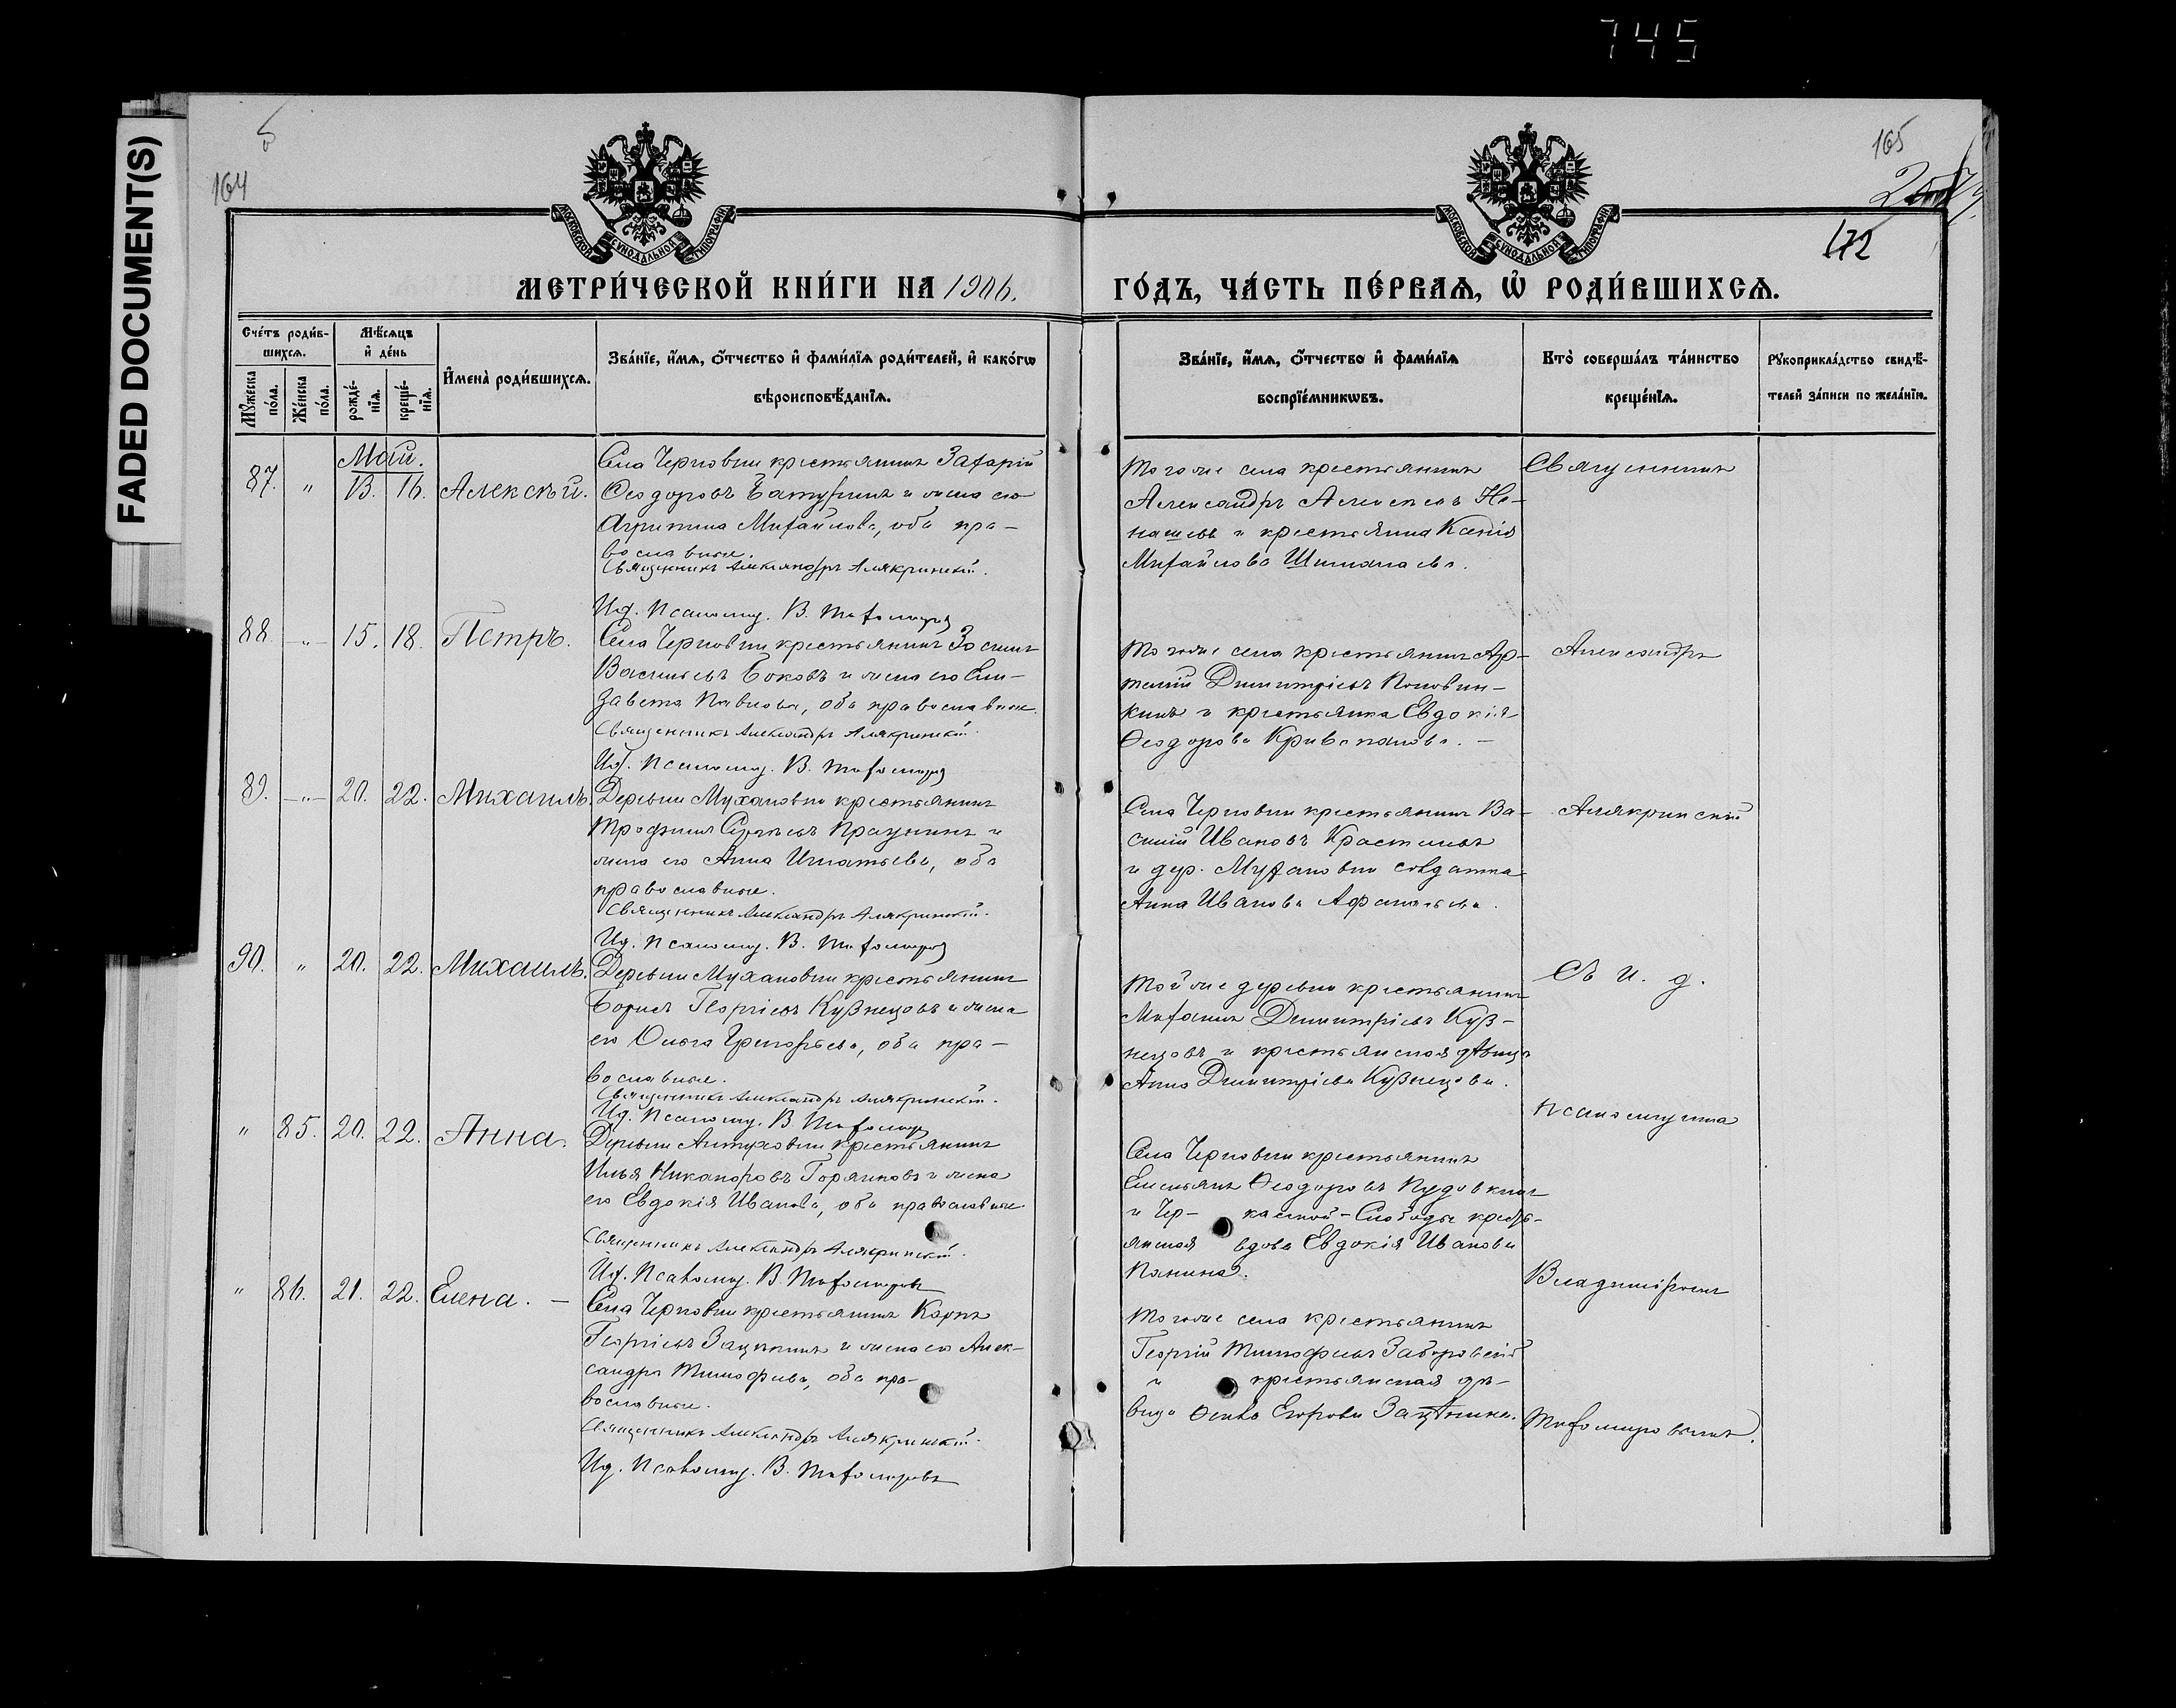 745
FADED DOCUMENT(S)
164
165
172
МОСКОВСКОЙ СѴНОДАЛЬНОЙ ТИПОГРАФІИ
МОСКОВСКОЙ СѴНОДАЛЬНОЙ ТИПОГРАФІИ
МЕТРИ́ЧЕСКОЙ КНИ́ГИ НА 1906.
ГО́ДЪ, ЧА́СТЬ ПЕ́РВАѦ, Ѡ҆ РОДИ́ВШИХСѦ.
Сче́тъ роди́в-
шихсѧ.
Мѣ́сѧцъ
и҆ де́нь
Мꙋ́жеска по́ла.
Же́нска по́ла.
рожде́-нїѧ.
креще́-нїѧ.
И҆мена̀ роди́вшихсѧ.
Зва́нїе, и҆́мѧ, ѻ҆́тчество и҆ фами́лїѧ роди́телей, и҆ како́гѡ
вѣроисповѣ́данїѧ.
Зва́нїе, и҆́мѧ, ѻ҆́тчество и҆ фами́лїѧ
воспрїе́мникѡвъ.
Кто̀ соверша́лъ та́инство
креще́нїѧ.
Рꙋкоприкла́дство свидѣ́-
телей за́писи по жела́нїю.
Май.
87. " 13. 16. Алексѣй.
Села Черновки крестьянинъ Захарій
Ѳеодоровъ Батуринъ и жена его
Агрипина Михайлова, оба пра-
вославные.
Священникъ Александръ Алякринскій.
Ид. Псаломщ. В. Тихомировъ
Того же села крестьянинъ
Александръ Алексѣевъ Не-
нашевъ и крестьянка Ксенія
Михайлова
Священникъ
88. -"- 15. 18. Петръ.
Села Черновки крестьянинъ Зосимъ
Васильевъ Боковъ и жена его Ели-
завета Павлова, оба православные.
Священникъ Александръ Алякринскій.
Ид. Псаломщ. В. Тихомировъ
Того же села крестьянинъ Ар-
темій Димитріевъ Половин-
кинъ и крестьянка Евдокія
Ѳеодорова Кривопалова. -
Александръ
89. -"- 20. 22. Михаилъ.
Деревни Мухановки крестьянинъ
Трофимъ Сергѣевъ и
жена его Анна Игнатьева, оба
православные.
Священникъ Александръ Алякринскій.
Ид. Псаломщ. В. Тихомировъ
Села Черновки крестьянинъ Ва-
силій Ивановъ
и дер. Мухановки солдатка
Анна Иванова Афанасьева.
Алякринскій
90. " 20. 22. Михаилъ.
Деревни Мухановки крестьянинъ
Борисъ Георгіевъ Кузнецовъ и жена
его Ольга Григорьева, оба пра-
вославные.
Священникъ Александръ Алякринскій.
Ид. Псаломщ. В. Тихомировъ
Той же деревни крестьянинъ
Михаилъ Димитріевъ Куз-
нецовъ и крестьянская дѣвица
Анна Димитріева Кузнецова.
Съ и. д.
псаломщика
" 85. 20. 22. Анна.
Деревни крестьянинъ
Илья Никаноровъ Горяиновъ и жена
его Евдокія Иванова, оба православные
Священникъ Александръ Алякринскій.
Ид. Псаломщ. В. Тихомировъ
Села Черновки крестьянинъ
Емельянъ Ѳеодоровъ Пудовкинъ
и Чер- касской-Слободы кресть-
янская вдова Евдокія Иванова
Панина.
Владиміромъ
" 86. 21. 22. Елена. -
Села Черновки крестьянинъ Карпъ
Георгіевъ Зацѣпинъ и жена его Алек-
сандра Тимофеева, оба пра-
вославные.
Священникъ Александръ Алякринскій.
Ид. Псаломщ. В. Тихомировъ
Того же села крестьянинъ
Георгій Тимофеевъ Заборовскій
и крестьянская дѣ-
вица Ѳекла Егорова Зацѣпина.
Тихомировымъ.